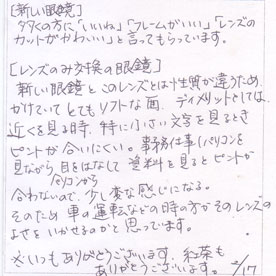 [新しい眼鏡]
多くの方に「いいね」「フレームがいい」「レンズの
カットがかわいい」と言ってもらっています。
[レンズのみ交換の眼鏡]
新しい眼鏡とこのレンズとは性質が違うため、
かけていてとてもソフトな面、ディメリットとしては、
近くを見る時、特に小さい文字を見るとき
ピントが合いにくい。事務仕事(パソコンを
見ながら、目をはなして資料を見るとピントが
パソコンから
合わないので、少し変な感じになる。
そのため車の運転などの時の方がそのレンズの
よさをいかせるのかと思っています。
※いつもありがとうございます。紅茶も
ありがとうございます。2/17